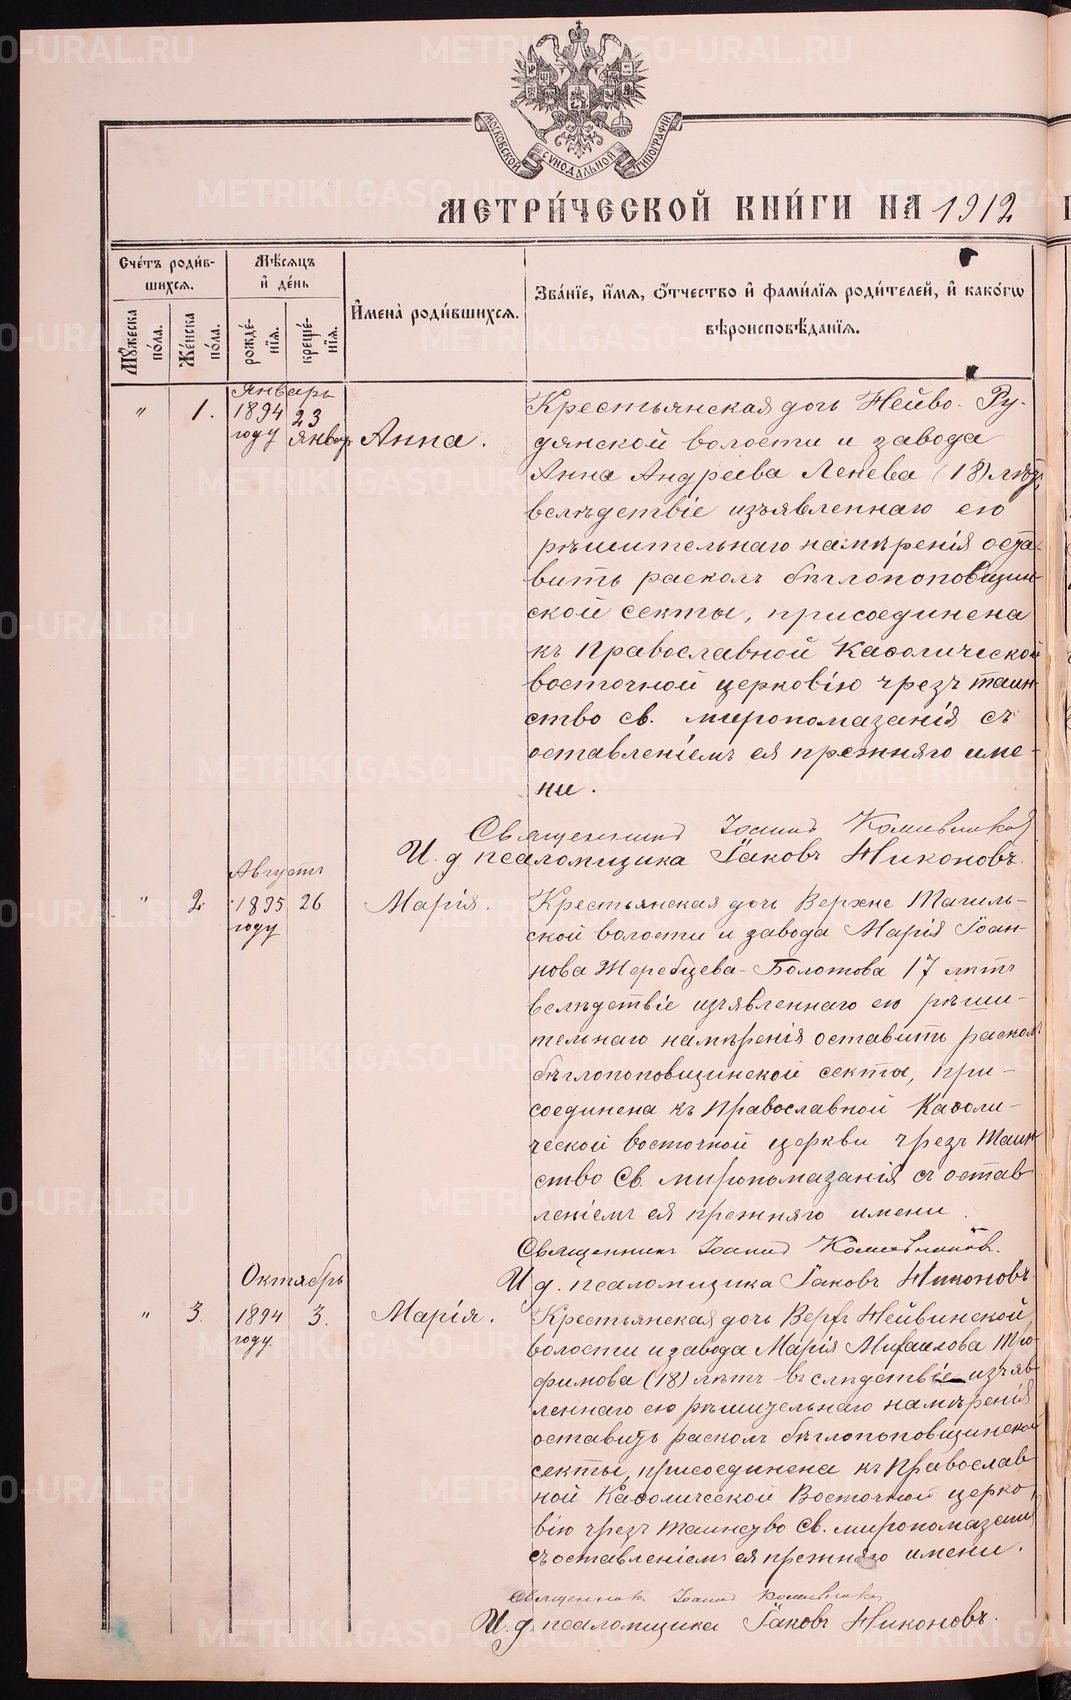 МОСКОВСКОЙ СѴНОДАЛЬНОЙ ТИПОГРАФІИ
МЕТРИ́ЧЕСКОЙ КНИ́ГИ НА 1912
Сче́тъ роди́в-
шихсѧ.
Мѣ́сѧцъ
и҆ де́нь
И҆мена̀ роди́вшихсѧ.
Зва́нїе, и҆́мѧ, ѻ҆́тчество и҆ фами́лїѧ роди́телей, и҆ како́гѡ
вѣроисповѣ́данїѧ.
Мꙋ́жеска
по́ла.
Же́нска
по́ла.
рожде́-
нїѧ.
креще́-
нїѧ.
Январь
" 1. 1894 23 Крестьянская дочь Нейво-Ру-
году январ Анна. дянской волости и завода
Анна Андреева Ленева (18) лѣтъ,
вслѣдствіе изъявленнаго ею
рѣшительнаго намѣренія оста-
вить расколъ бѣглопоповщин-
ской секты, присоединена
къ Православной Каѳолической
восточной церковію чрезъ таин-
ство св. миропомазанія съ
оставленіемъ ея прежняго име-
ни.
Священникъ Іоаннъ
И. д. псаломщика Іаковъ Никоновъ.
Августъ
" 2. 1895 26 Марія. Крестьянская дочь Верхне Тагиль-
году ской волости и завода Марія Іоан-
нова Жеребцева-Болотова 17 лѣтъ
вслѣдствіе изъявленнаго ею рѣши-
тельнаго намѣренія оставить расколъ
бѣглопоповщинской секты, при-
соединена къ Православной Каѳоли-
ческой восточной церкви чрезъ Таин-
ство Св. миропомазанія съ остав-
леніемъ ея прежняго имени.
Священникъ Іоаннъ
Октябрь И. д. псаломщика Іаковъ Никоновъ.
" 3. 1894 3. Марія. Крестьянская дочь Верхъ Нейвинской
году. волости и завода Марія Михаилова Тро-
фимова (18) лѣтъ вслѣдствіе изъяв-
леннаго ею рѣшительнаго намѣренія
оставить расколъ бѣглопоповщинской
секты, присоединена къ Православ-
ной Каѳолической Восточной церко-
вію чрезъ таинство Св. миропомазанія
съ оставленіемъ ея прежняго имени.
Священникъ Іоаннъ
И. д. псаломщика Іаковъ Никоновъ.
METRIKI.GASO-URAL.RU